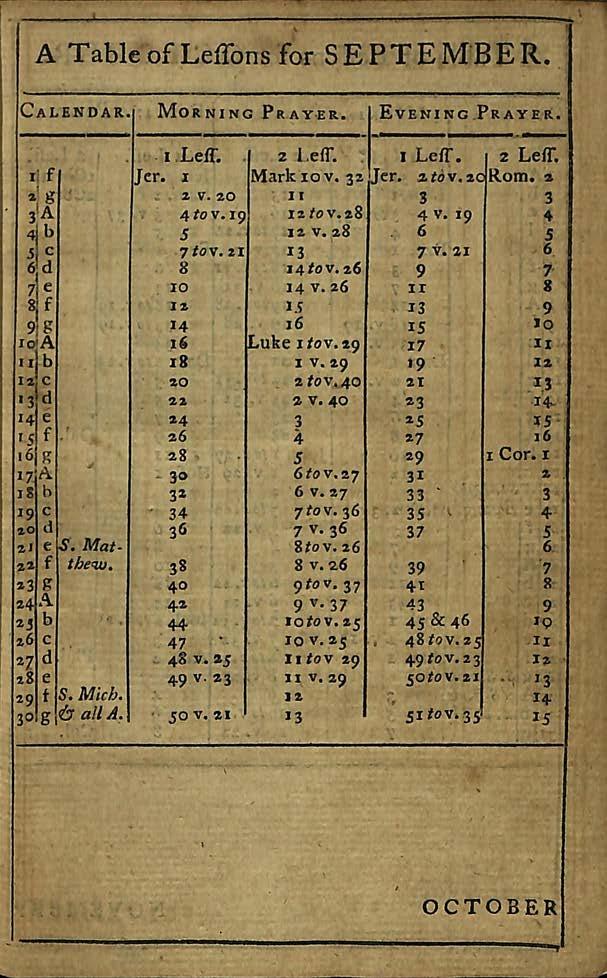 A Table of Leſſons for SEPTEMBER.
CALENDAR. MORNING PRAYER. EVENING PRAYER.
1 Leſſ. 2 Leſſ. 1 Leſſ. 2 Leſſ.
1 f Jer. 1 Mark 10 v. 32 Jer. 2 to v. 20 Rom. 2
2 g 2 v. 20 11 3 3
3 A 4 to v. 19 12 to v. 28 4 v. 19 4
4 b 5 12 v. 28 6 5
5 c 7 to v. 21 13 7 v. 21 6
6 d 8 14 to v. 26 9 7
7 e 10 14 v. 26 11 8
8 f 12 15 13 9
9 g 14 16 15 10
10 A 16 Luke 1 to v. 29 17 11
11 b 18 1 v. 29 19 12
12 c 20 2 to v. 40 21 13
13 d 22 2 v. 40 23 14
14 e 24 3 25 15
15 f 26 4 27 16
16 g 28 5 29 1 Cor. 1
17 A 30 6 to v. 27 31 2
18 b 32 6 v. 27 33 3
19 c 34 7 to v. 36 35 4
20 d 36 7 v. 36 37 5
21 e S. Mat- 8 to v. 26 6
22 f thew. 38 8 v. 26 39 7
23 g 40 9 to v. 37 41 8
24 A 42 9 v. 37 43 9
25 b 44 10 to v. 25 45 & 46 10
26 c 47 10 v. 25 48 to v. 25 11
27 d 48 v. 25 11 to v 29 49 to v. 23 12
28 e 49 v. 23 11 v. 29 50 to v. 21 13
29 f S. Mich. 12 14
30 g & all A. 50 v. 21 13 51 to v. 35 15
OCTOBER